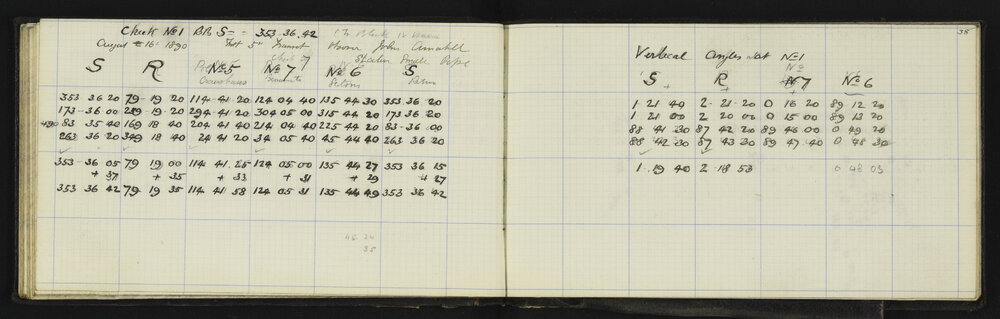 Check No 1 BB S = - 353.36.42
August 16 - 1890 Instr 5" Transit Observer John
Station Small
S R No 5 No 7 No 6 S
353 36 20 79 - 19 20 114 - 41 20 124 04 40 135 44 30 353 36 20
173 - 36 00 259 - 19 20 294 - 41 20 304 05 00 315 44 20 173 36 20
83 35 40 169 18 40 204 41 40 214 04 40 225 44 20 83 - 36 00
263 36 20 349 18 40 24 41 20 34 05 40 45 44 40 263 36 20
353 - 36 05 79 19 00 114 41 25 124 05 00 135 44 27 353 36 15
+ 37 + 35 + 33 + 31 + 29 + 27
353 36 42 79 19 35 114 41 58 124 05 31 135 44 49 353 36 42
46 24
35
38
Vertical angles at No 1
S R No 7 No 6
+ + +
1 21 40 2 - 21 - 20 0 16 20 89 12 20
1 21 00 2 20 00 0 15 00 89 13 20
88 41 30 87 42 20 89 46 00 0 49 20
88 42 30 87 43 30 89 47 40 0 48 30
1 19 40 2 18 53 0 48 03